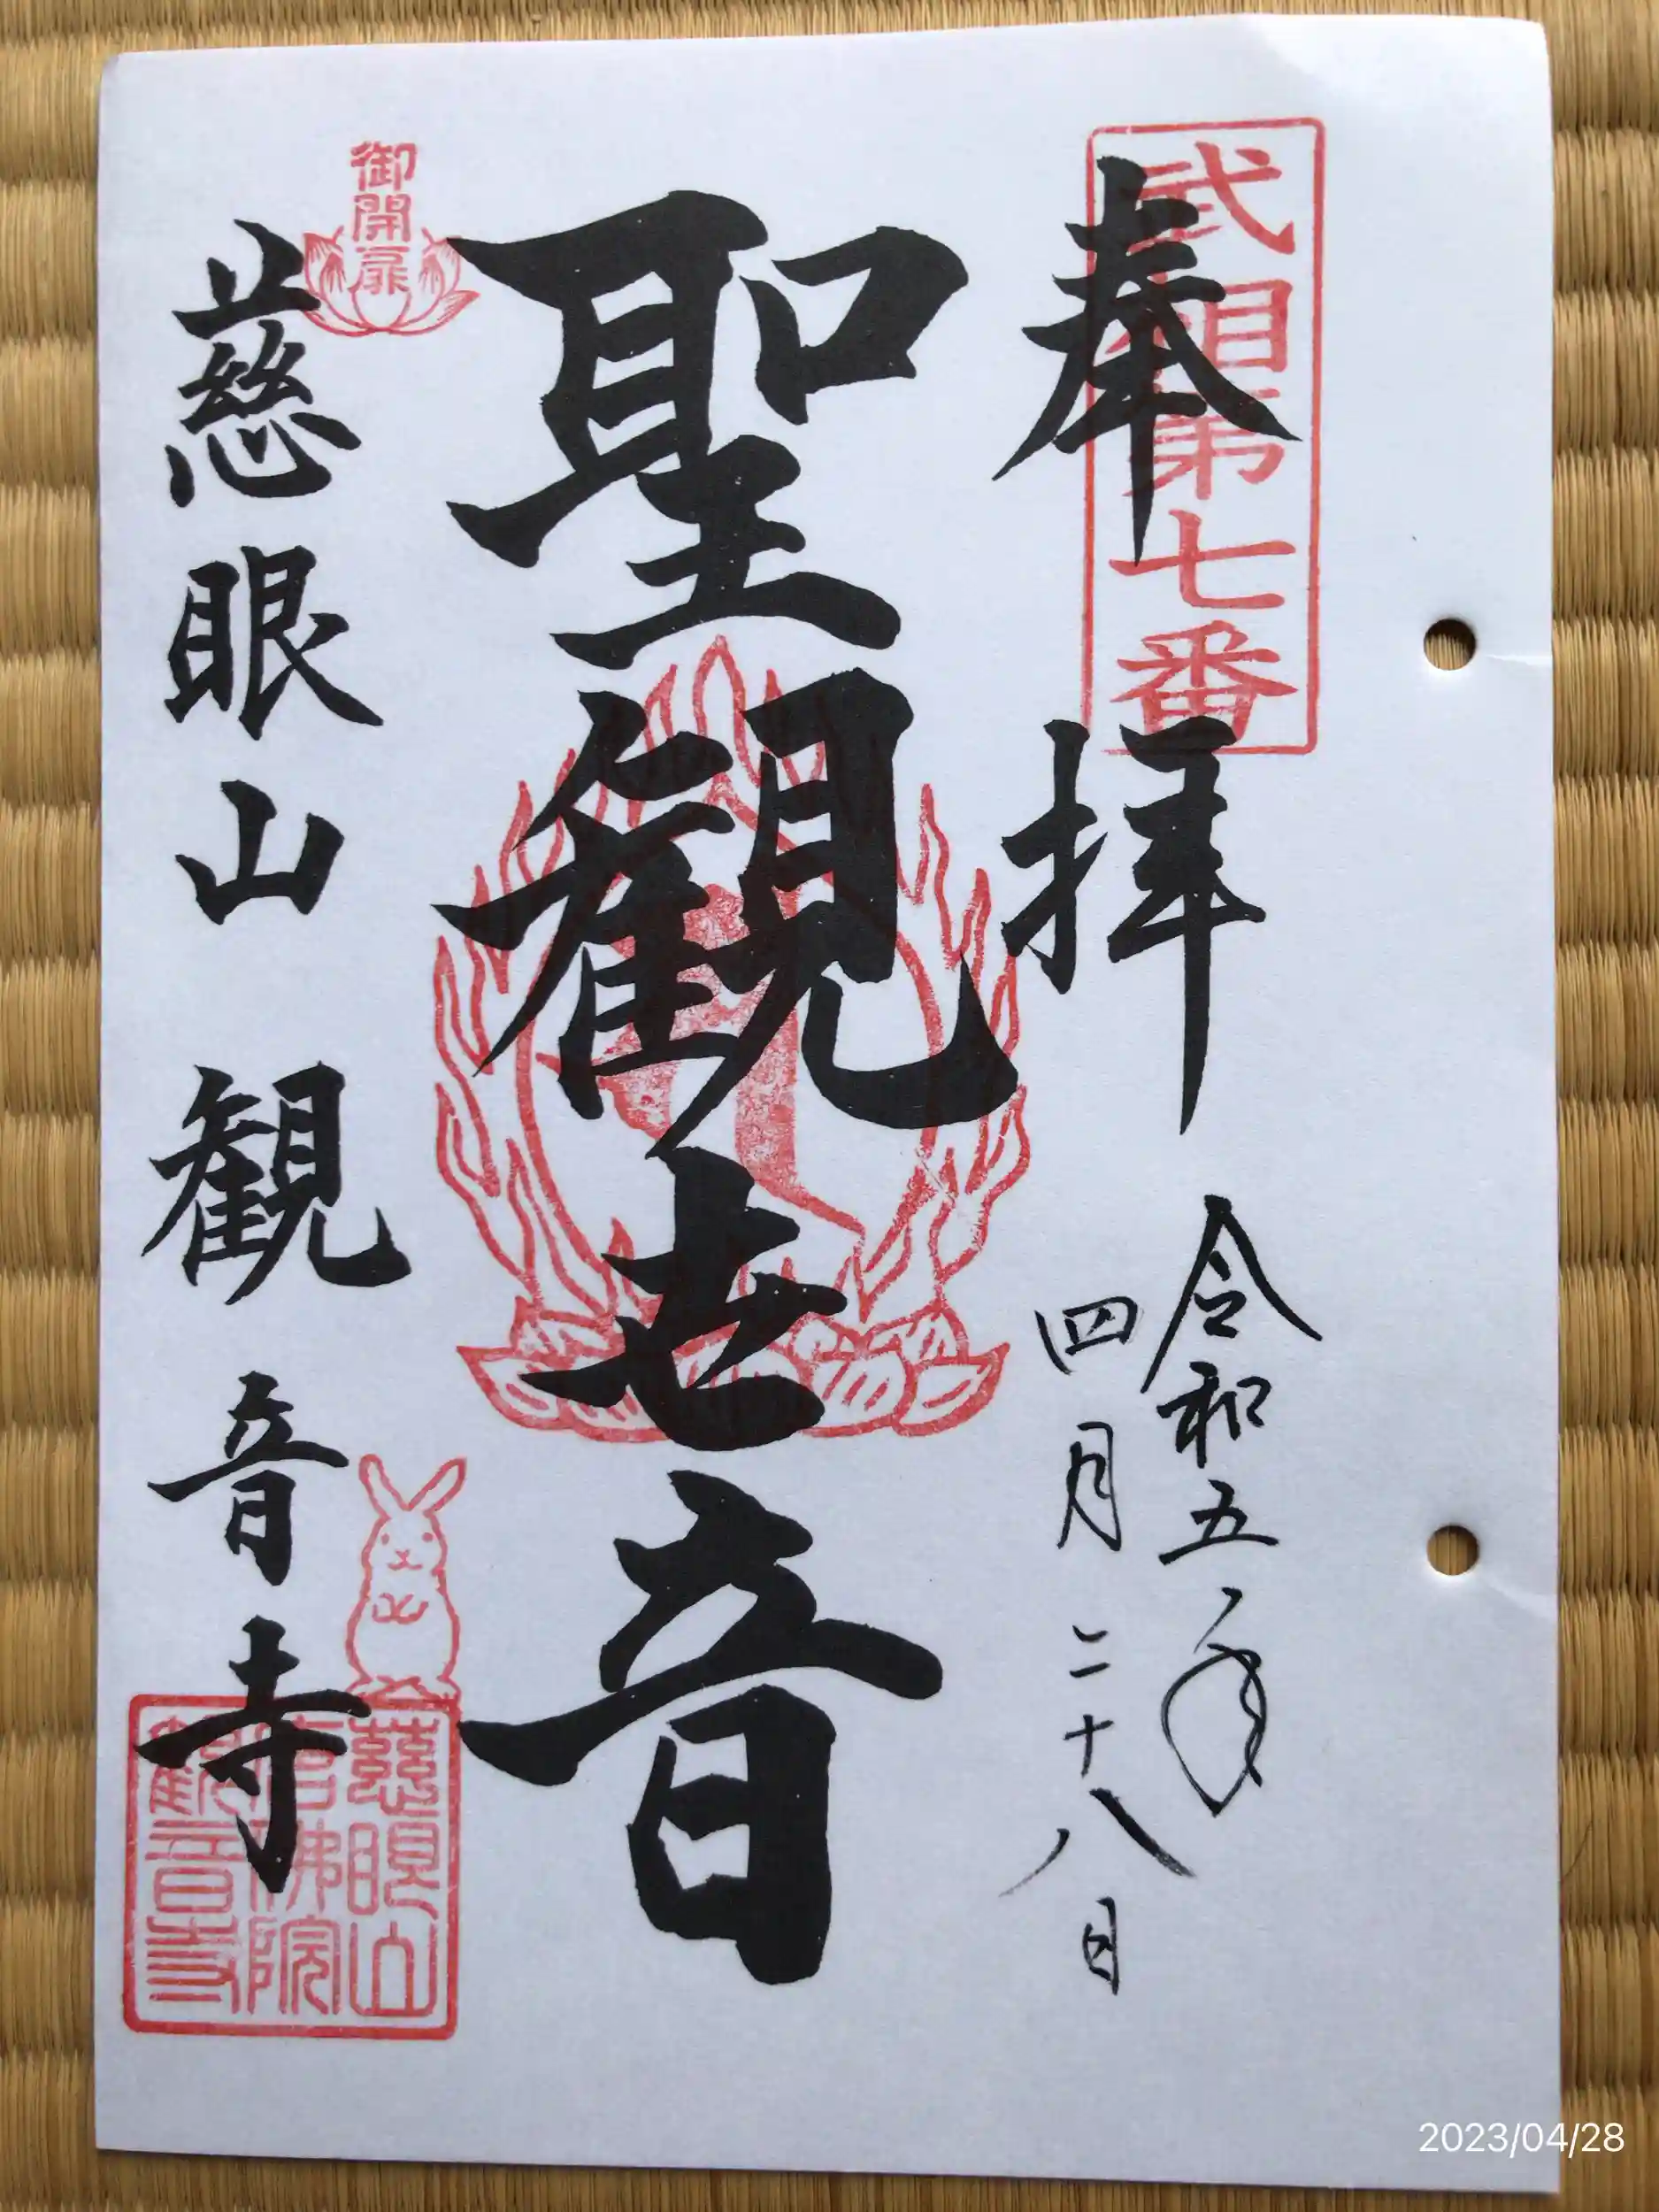 武相第七番
奉拝
令和五年
四月二十八日
聖観世音
御開扉
慈眼山観音寺
慈眼山
観音寺
2023/04/28